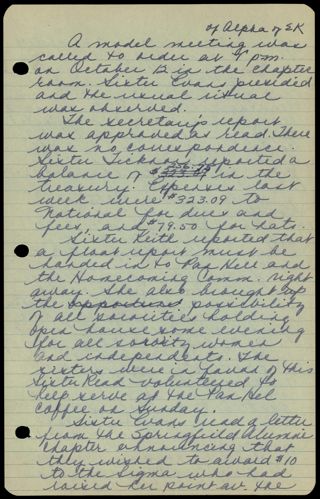 of Alpha of ΣK
A model meeting was
called to order at 7 p.m.
on October 12 in the chapter
room. Sister Evans presided
and the usual ritual
was observed.
The secretary's report
was approved as read. There
was no correspondence.
Sister reported a
balance of in the
treasury. Expenses last
week were $323.09 to
National for dues and
fees, and $79.50 for hats.
Sister Keith reported that
a float report must be
handed in to Pan Hell and
the Homecoming Comm. right
away. She also brought up
the possibility
of all sororities holding
open house some evening
for all sorority women
and independents. The
sisters were in favor of this
Sister Read volunteered to
help serve at the Pan Hel
coffee on Sunday.
Sister Evans read a letter
from the Springfield Alumnie
Chapter announcing that
they wished to award $10
to the Sigma who had
raised her point av. the